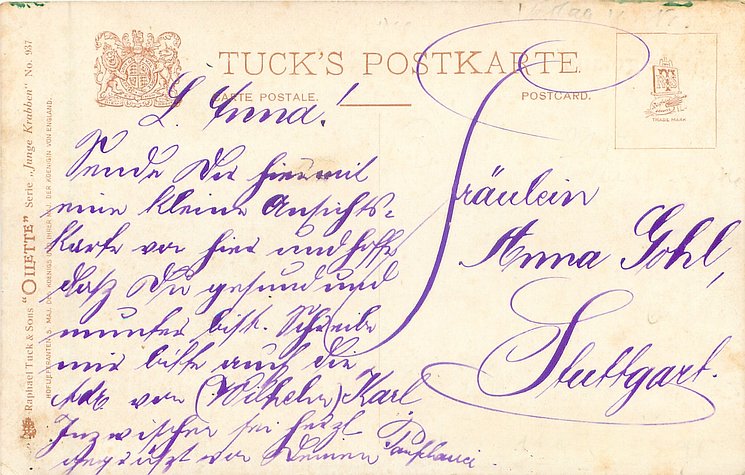 TUCK'S POSTKARTE.
CARTE POSTALE.
POSTCARD.
TRADE MARK
Raphael Tuck & Sons "OILETTE" Serie „Junge Krabben" No. 937
HOFLIEFERANTEN S. MAJ. DES KOENIGS UND IHRER MAJ. DER KOENIGIN VON ENGLAND.
L. Anna!
Sende Dir hiermit
eine kleine Ansichts=
karte von hier und hoffe
daß Du gesund und
munter bist. Schreibe
mir bitte auch die
Adr von (Wilhelm) Karl
Inzwischen sei herzl
gegrüßt von Deinem
Fräulein
Anna Gohl,
Stuttgart.